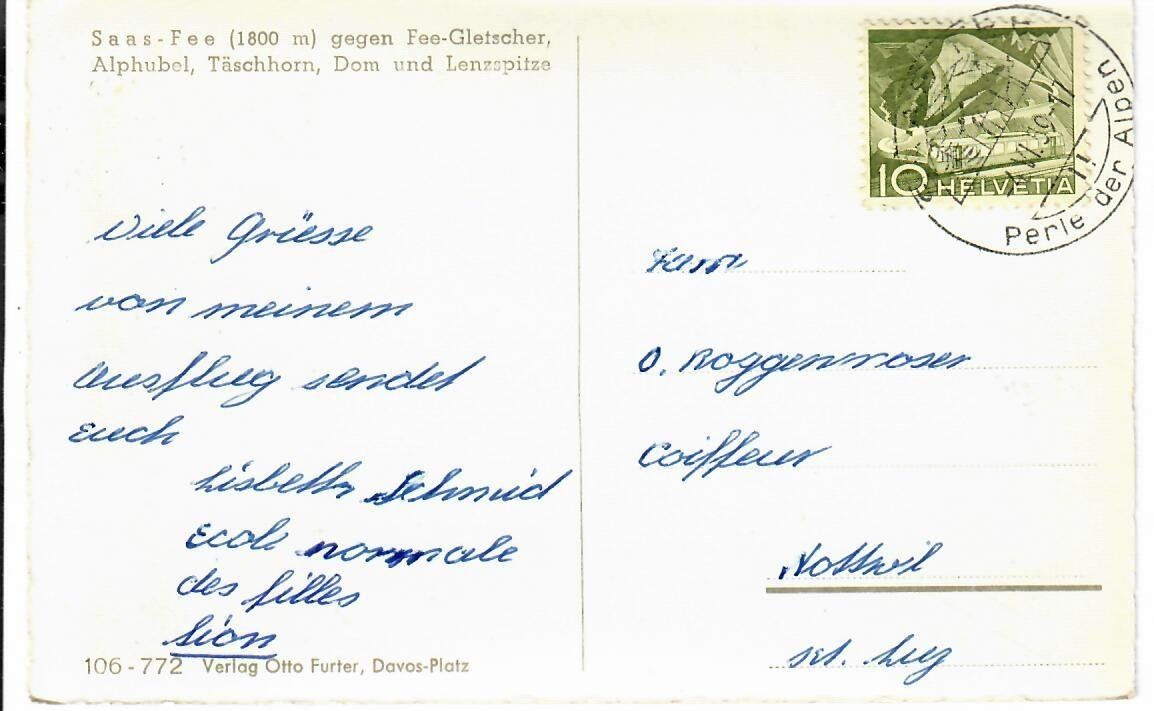 Saas-Fee (1800 m) gegen Fee-Gletscher,
Alphubel, Täschhorn, Dom und Lenzspitze
Viele Grüsse
von meinem
Ausflug sendet
Euch
Lisbeth Schmid
Ecole normale
des filles
Sion
106-772 Verlag Otto Furter, Davos-Platz
10 HELVETIA
Perle der Alpen
Herrn
O. Roggenmoser
Coiffeur
Nottwil
Kt. Luz